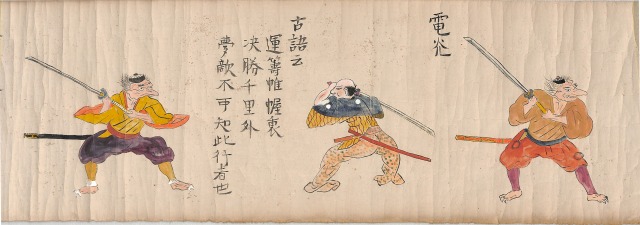 電光
古語云
運籌帷幄裏
决勝千里外
夢敵不可知此行者也